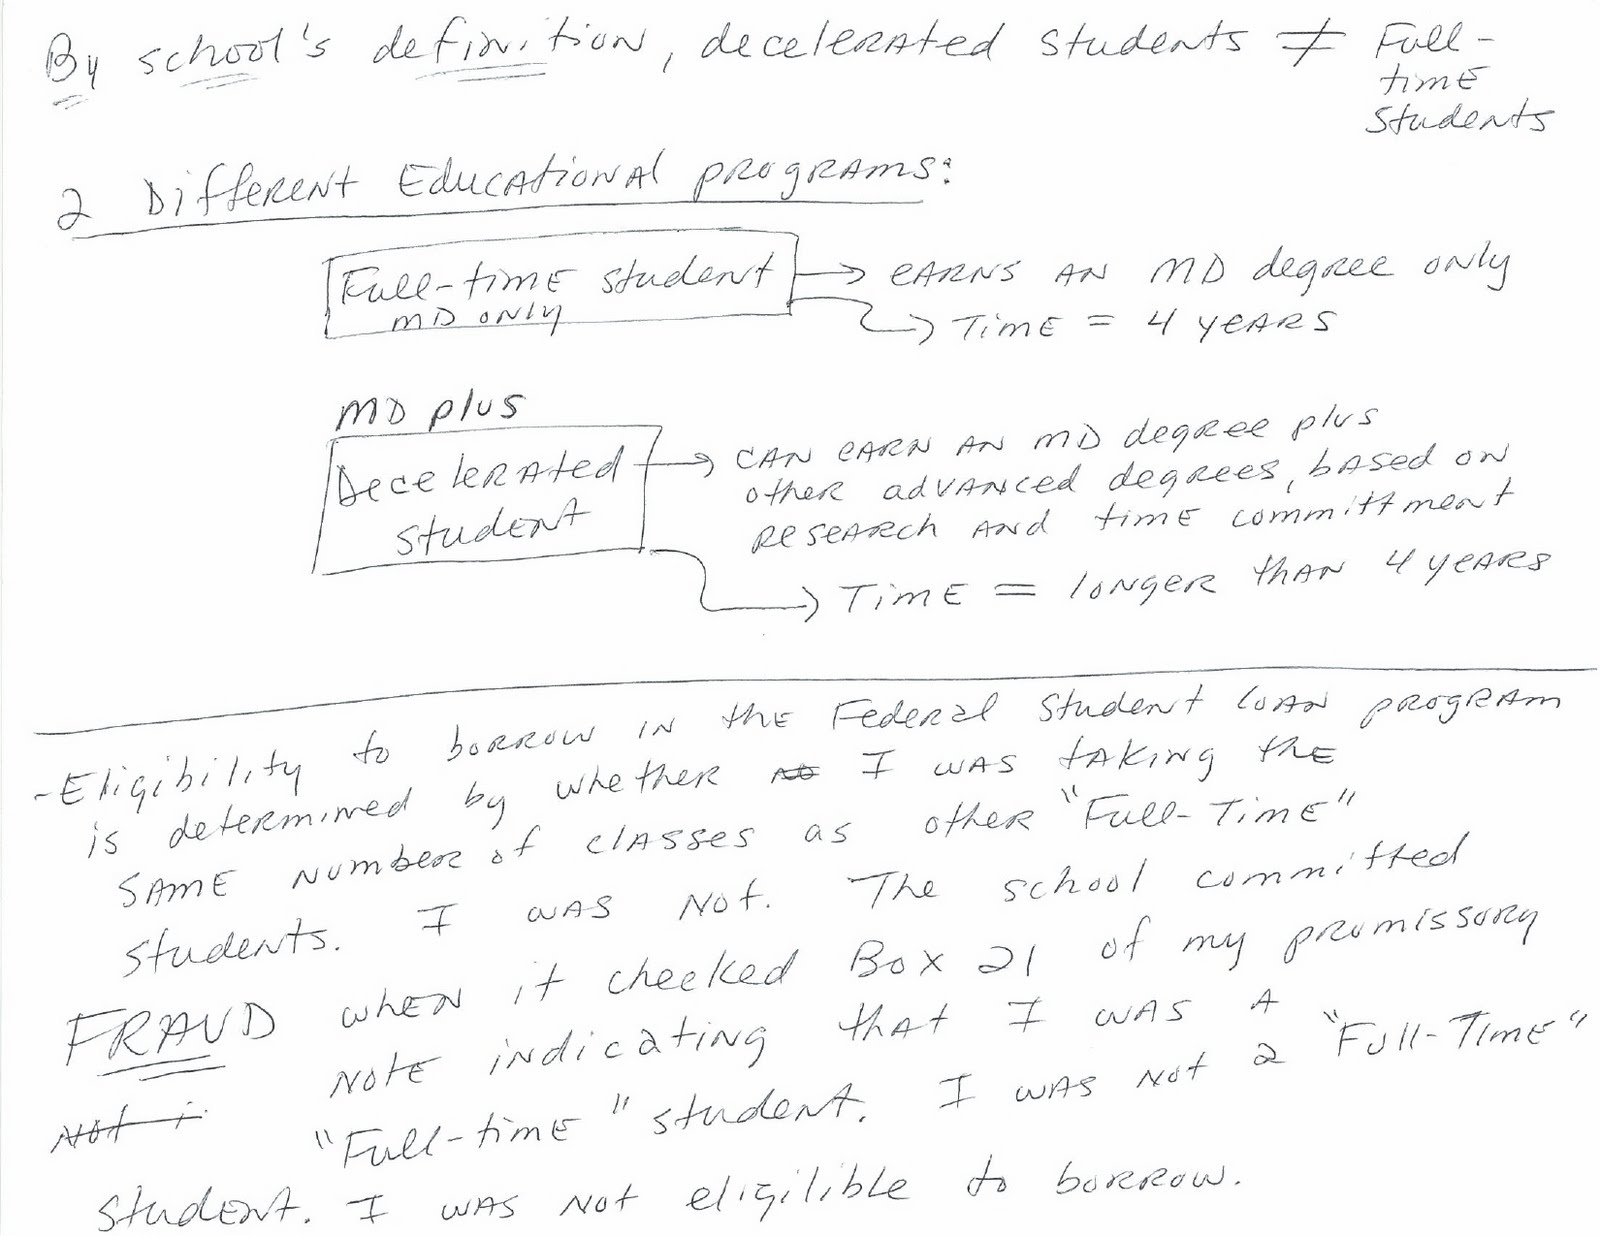 By school's definition, decelerated students ≠ Full-
time
students
2 Different Educational programs:
Full-time student
MD only
→ earns an MD degree only
→ Time = 4 years
MD plus
Decelerated
student
→ can earn an MD degree plus
other advanced degrees, based on
research and time committment
→ Time = longer than 4 years
- Eligibility to borrow in the Federal Student loan program
is determined by whether no I was taking the
same number of classes as other "Full-Time"
students. I was not. The school committed
FRAUD when it checked Box 21 of my promissory
note indicating that I was a
not i
"Full-time" student. I was not a "Full-Time"
student. I was not eligilible to borrow.